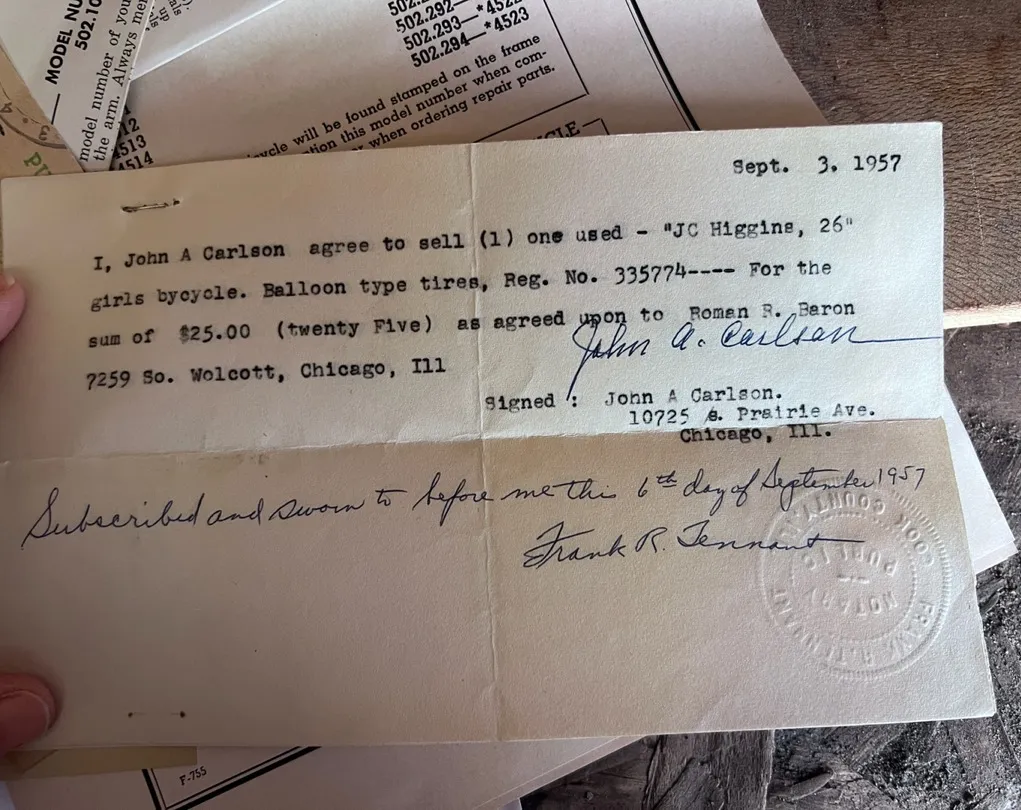 MODEL NU
502.10
model number of you
the arm. Always men
12
4513
4514
502.292—
502.293—*452
502.294—*4523
cycle will be found stamped on the frame
tion this model number when com-
or when ordering repair parts.
CYCLE
Sept. 3. 1957
I, John A Carlson agree to sell (1) one used - "JC Higgins, 26"
girls bycycle. Balloon type tires, Reg. No. 335774---- For the
sum of $25.00 (twenty Five) as agreed upon to Roman R. Baron
7259 So. Wolcott, Chicago, Ill
John A. Carlson
Signed : John A Carlson.
10725 s. Prairie Ave.
Chicago, Ill.
Subscribed and sworn to before me this 6th day of September 1957
Frank R. Tennant
FRANK R. TENNANT
NOTARY
PUBLIC
COOK COUNTY
F-755